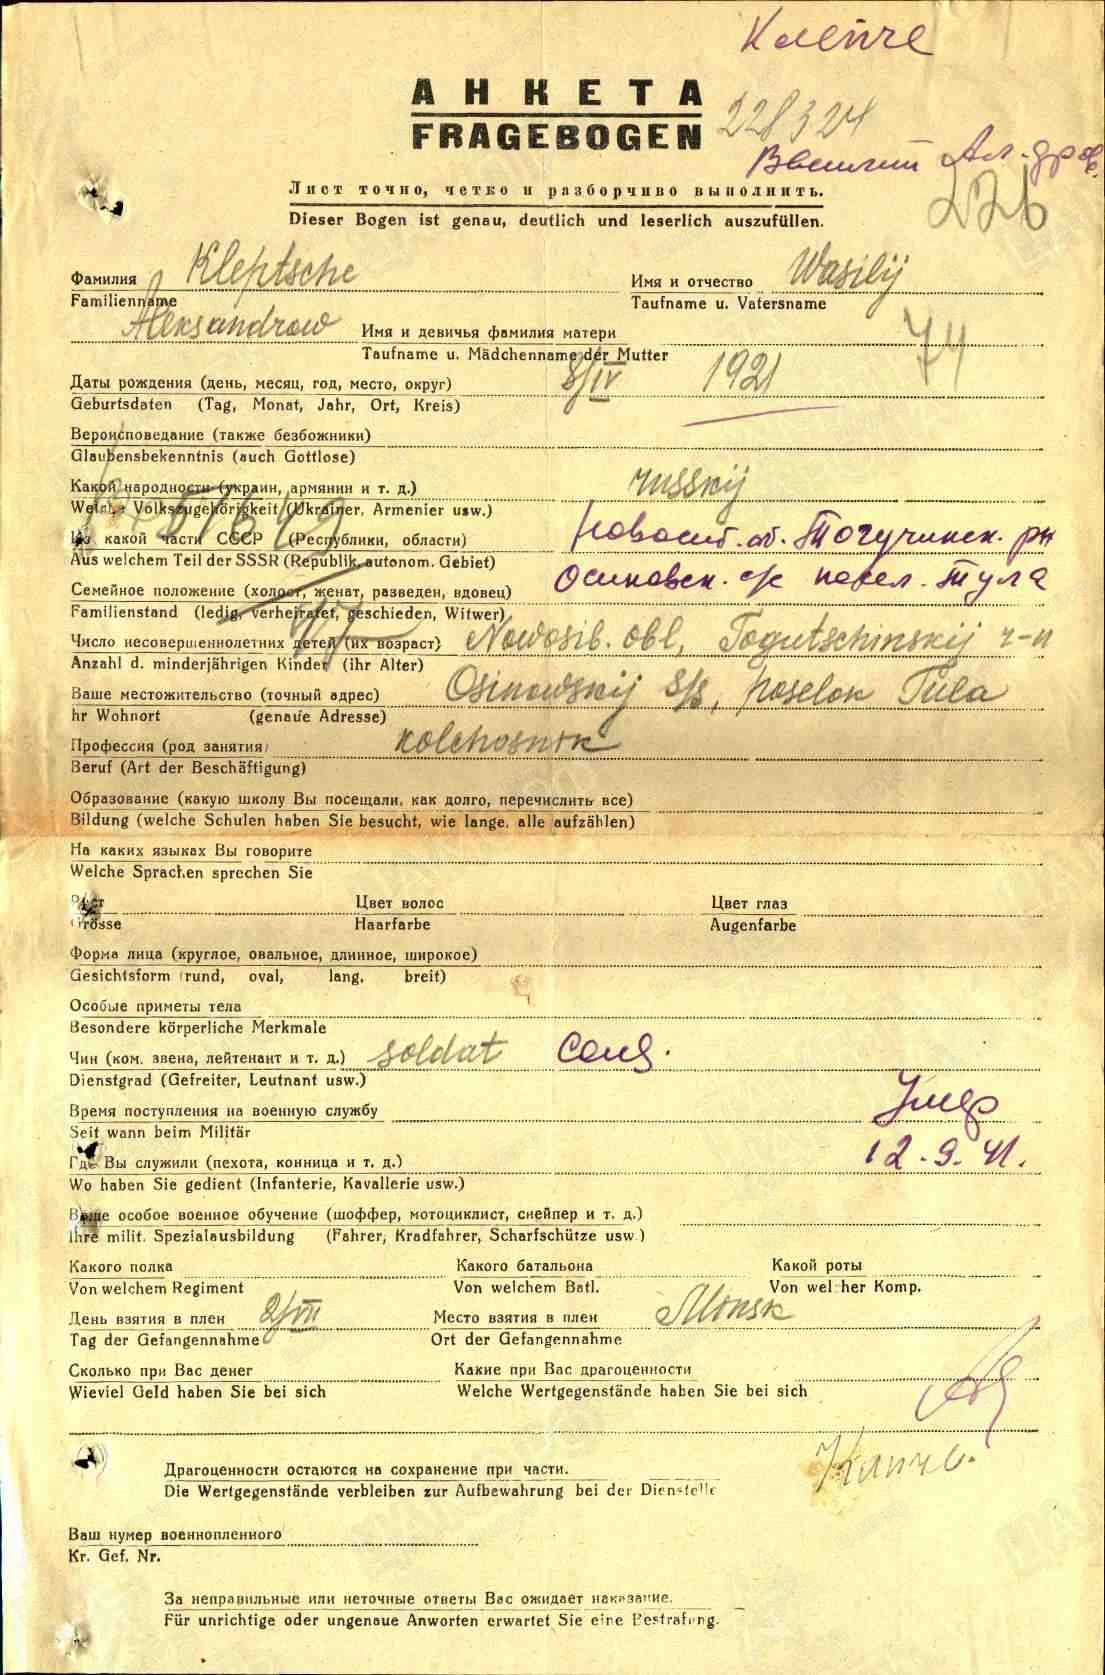 Клепче
АНКЕТА
FRAGEBOGEN
228324
Василий Ал-дров.
226
Лист точно, четко и разборчиво выполнить.
Dieser Bogen ist genau, deutlich und leserlich auszufüllen.
Фамилия Kleptsche Имя и отчество Wasilij
Familienname Taufname u. Vatersname
Aleksandrow Имя и девичья фамилия матери
Taufname u. Mädchenname der Mutter
74
Даты рождения (день, месяц, год, место, округ) 8/IV 1921
Geburtsdaten (Tag, Monat, Jahr, Ort, Kreis)
Вероисповедание (также безбожники)
Glaubensbekenntnis (auch Gottlose)
Какой народности (украин, армянин и т. д.) russkij
Welcher Volkszugehörigkeit (Ukrainer, Armenier usw.)
Из какой части СССР (Республики, области) Новосиб. об. Тогучинск. рн
Aus welchem Teil der SSSR (Republik, autonom. Gebiet)
Семейное положение (холост, женат, разведен, вдовец) Осиновск. с/с посел. Тула
Familienstand (ledig, verheiratet, geschieden, Witwer)
Число несовершеннолетних детей (их возраст) Nowosib. obl, Togutschinskij r-n
Anzahl d. minderjährigen Kinder (ihr Alter)
Ваше местожительство (точный адрес) Osinowskij s/s, poselok Tula
hr Wohnort (genaue Adresse)
Профессия (род занятия) kolchosnik
Beruf (Art der Beschäftigung)
Образование (какую школу Вы посещали, как долго, перечислить все)
Bildung (welche Schulen haben Sie besucht, wie lange, alle aufzählen)
На каких языках Вы говорите
Welche Sprachen sprechen Sie
Рост Цвет волос Цвет глаз
Grösse Haarfarbe Augenfarbe
Форма лица (круглое, овальное, длинное, широкое)
Gesichtsform (rund, oval, lang, breit)
Особые приметы тела
Besondere körperliche Merkmale
Чин (ком. звена, лейтенант и т. д.) soldat Солд.
Dienstgrad (Gefreiter, Leutnant usw.)
Время поступления на военную службу Умер
Seit wann beim Militär
Где Вы служили (пехота, конница и т. д.) 12.9.41.
Wo haben Sie gedient (Infanterie, Kavallerie usw.)
Ваше особое военное обучение (шоффер, мотоциклист, снейпер и т. д.)
Ihre milit. Spezialausbildung (Fahrer, Kradfahrer, Scharfschütze usw.)
Какого полка Какого батальона Какой роты
Von welchem Regiment Von welchem Batl. Von welcher Komp.
День взятия в плен 2/VII Место взятия в плен Minsk
Tag der Gefangennahme Ort der Gefangennahme
Сколько при Вас денег Какие при Вас драгоценности
Wieviel Geld haben Sie bei sich Welche Wertgegenstände haben Sie bei sich
Драгоценности остаются на сохранение при части.
Die Wertgegenstände verbleiben zur Aufbewahrung bei der Dienstelle
Ваш нумер военнопленного
Kr. Gef. Nr.
За неправильные или неточные ответы Вас ожидает наказание.
Für unrichtige oder ungenaue Anworten erwartet Sie eine Bestrafung.